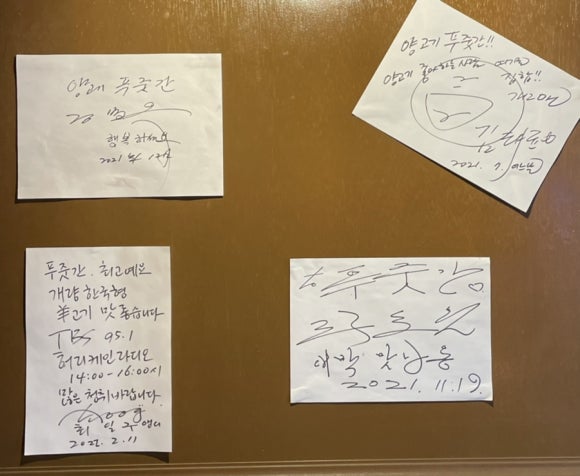 양고기 푸줏간
행복하세요
2021
양고기 푸줏간!!
양고기 좋아하는 사람들 여기로
집합!!
개그맨
2021. 9.
푸줏간. 최고예요
개량 한국형
羊고기 맛 좋습니다
TBS 95.1
허리케인라디오
14:00-16:00시
많은 청취바랍니다
최일구 앵커
2022. 2. 11
푸줏간
대박 맛남용
2021. 11. 19.